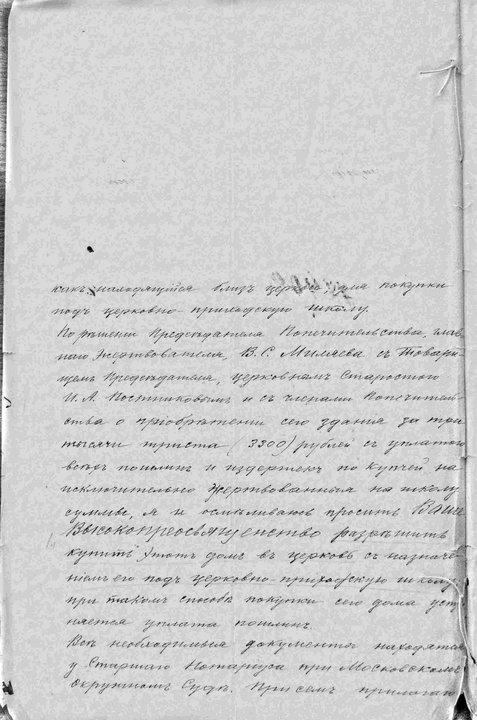 какъ находящійся близъ церкви, для покупки
подъ церковно-приходскую школу.
По решеніи Председателя Попечительства, глав-
наго жертвователя, В. С. Миляева съ Товари-
щемъ Председателя, церковнымъ Старостою
И. А. Постниковымъ и съ членами Попечитель-
ства о пріобретеніи сего зданія за три
тысячи триста (3300) рублей съ уплатою
всехъ пошлинъ и издержекъ по купчей на
исключительно жертвованныя на школу
суммы, я и осмеливаюсь просить Ваше
Высокопреосвященство разрешить
купить этотъ домъ въ церковь съ назначе-
ніемъ его подъ церковно-приходскую школу,
при такомъ способе покупки сего дома уст-
няется уплата пошлинъ.
Все необходимые документы находятся
у Старшаго Нотаріуса при Московскомъ
Окружномъ Суде. При семъ прилагаю